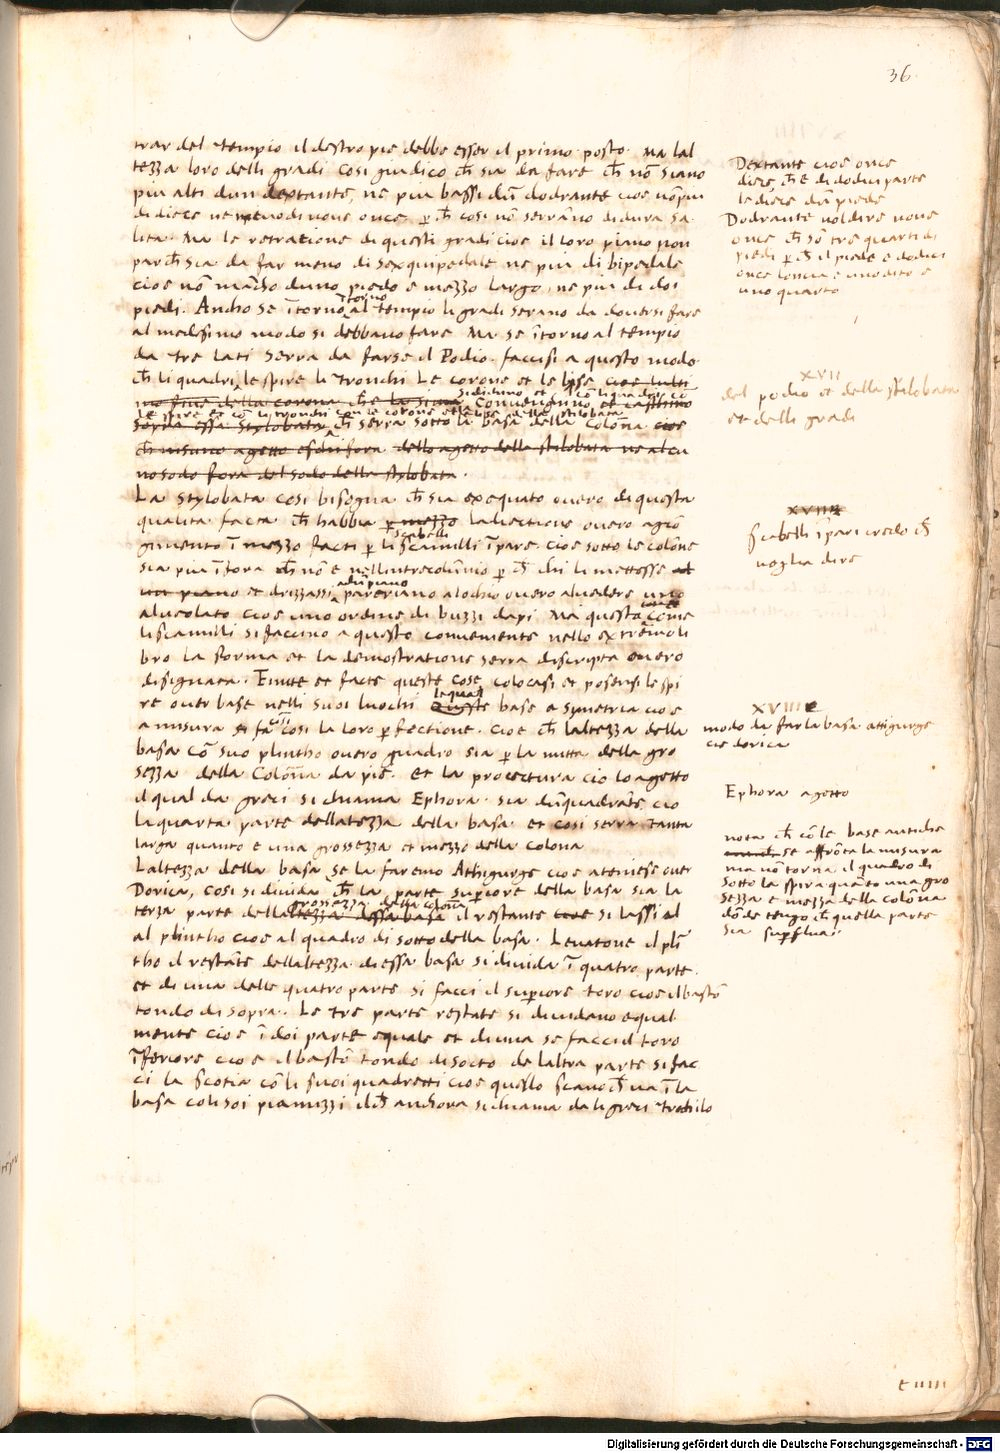 36
trar del tempio il destro pie debbe esser el primo posto. Ma lal
tezza loro delli gradi cosi giudico ch̄ sia da fare ch̄ nō siano
piu alti dun dextante, ne piu bassi dū dodrante cioe nō piu
di diece ne meno di nove once. p̄ ch̄ cosi nō serrāno di dura sa
lita. Ma le retratione di questi gradi cioe il loro piano non
par ch̄ sia da far meno di sexquipedale ne piu di bipedale
cioe nō mācho duno piede e mezzo largo, ne piu di doi
piedi. Ancho se ītorno al tempio li gradi serano da doversi fare
al medesimo modo si debbano fare Ma se ītorno al tempio
da tre lati serra da farse il Podio. faccisi a questo modo
ch̄ li quadri, le spire li tronchi le corone et le lyse cioe lulti
mo fine della corona ch̄ e la sima convenghino
le spire et cō li tronchi con le corone et le lyse della stilobata
sopra essa stylobata ch̄ serra sotto la basa della Colōna cioe
ch̄ nisuno agetto fora dello agetto della stilobata ne alcu
no sodo fora del sodo della stylobata.
La Stylobata cosi bisogna ch̄ sia exequato overo di questa
qualita facta ch̄ habbia p̄ mezzo ladiectione overo agiō
gimento ī mezzo facti p̄ li scamilli ī pare. cioe sotto le colōne
scabelli
sia piu ī fora ch̄ nō e nell intrecolūnio p̄ ch̄ chi li mettesse al
un piano et drizzassi pareriano alochio overo alvedere uno
alveolato cioe uno ordine di buzzi dapi Ma questa come
li scamilli si faccino a questo conveniente nello extremo li
bro la forma et la demostratione serra discripta overo
disignata. Finite et facte queste cose colocasi et posensi le spi
re over base nelli suoi luochi queste base a symetria cioe
le quali
a misura si fa cosi la loro p̄fectione. cioe ch̄ laltezza della
basa cō suo plintho overo quadro sia p̄ la mitta della gro
sezza della Colōna da pie. et la proiectura cio lo agetto
il qual da greci si chiama Ephora. sia dū quadrāte cio
la quarta parte dellatezza della basa. et cosi serra tanta
larga quanto e una grossezza et mezzo della colona
Laltezza della basa se la faremo Atthigurge cioe ateniese over
Dorica, cosi si divida ch̄ la parte supiore della basa sia la
terza parte della grossezza della colōna il restante cioe si lassi al
al plintho cioe al quadro di sotto della basa. Levatone il plī
tho il restāte dellaltezza di essa basa si divida ī quatro parte.
et di una delle quatro parte si facci il supiore toro cioe il bastō
tondo di sopra. Le tre parte restate si dividano equal
mente cioe ī doi parte equale et di una se facci il toro
īferiore cioe il bastō tondo di socto de laltra parte si fac
ci la scotia cō li suoi quadretti cioe quello scavo ch̄ va ī la
basa coli soi pianuzzi il ch̄ anchora si chiama da li greci trochilo
Dextante cioe once
diece, ch̄ e di dodici parte
le diece dū piede
Dodrante vol dire nove
once ch̄ sō tre quarti di
piedi p̄ ch̄ il piede e dodici
once loncia e uno dito e
uno quarto
XVII
del podio et della stilobata
et delli gradi
XVIII
scabelli īpari credo ch̄
voglia dire
XVIII
modo da far la basa attigurge
cie dorica
Ephora agetto
nota ch̄ cō le base antiche
se affrōta la misura
ma nō torna il quadro di
sotto la spira quāto una gro
sezza e mezza della colōna
dōde tengo ch̄ quella parte
sia sup̄flua.
e iiiii
Digitalisierung gefördert durch die Deutsche Forschungsgemeinschaft - DFG